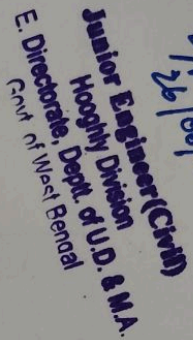 Junior Engineer (Civil)
Hooghly Division
E. Directorate, Deptt. of U.D. & M.A.
Govt of West Bengal